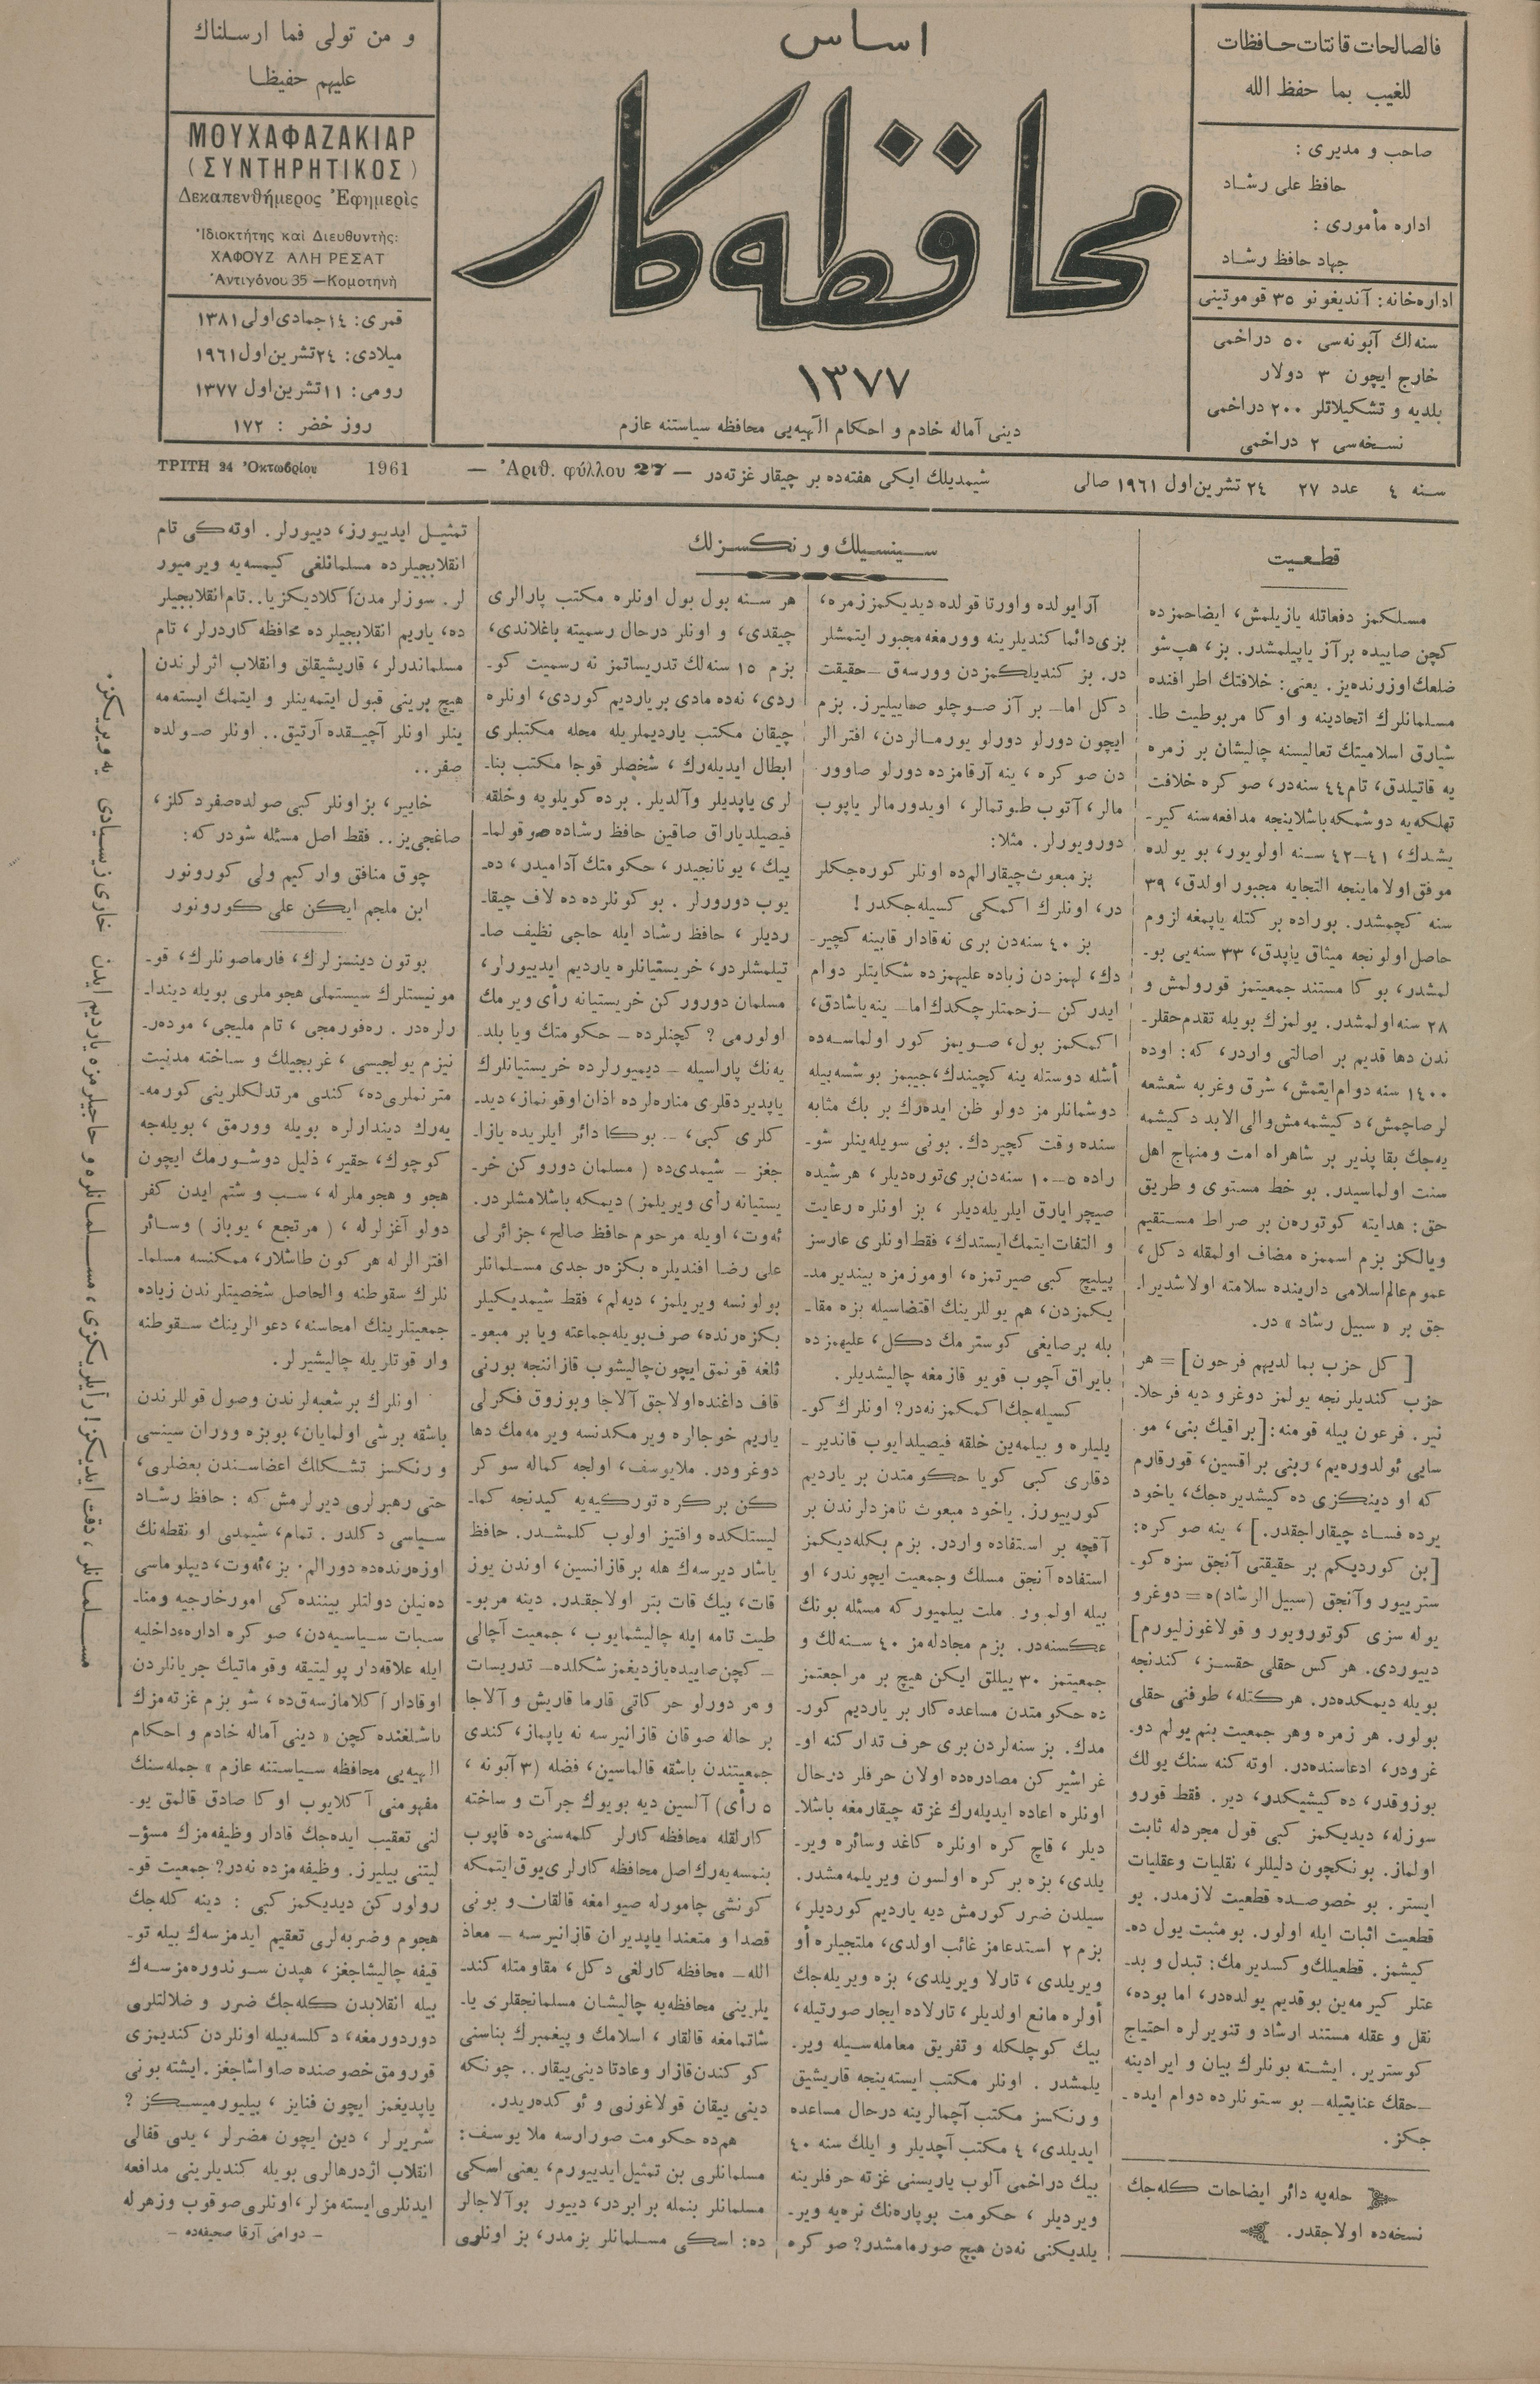 اساس
محافظه‌كار
١٣٧٧
دينى آماله خادم و احكام الٓهيه‌يى محافظه سياستنه عازم
فالصالحات قانتات حافظات
للغيب بما حفظ الله
صاحب و مديرى :
حافظ على رشاد
اداره مأمورى :
جهاد حافظ رشاد
اداره‌خانه: آنديغونو ٣٥ قوموتينى
سنه‌لك آبونه‌سى ٥٠ دراخمى
خارج ايچون ٣ دولار
بلديه و تشكيلاتلر ٢٠٠ دراخمى
نسخه‌سى ٢ دراخمى
و من تولى فما ارسلناك
عليهم حفيظا
ΜΟΥΧΑΦΑΖΑΚΙΑΡ
(ΣΥΝΤΗΡΗΤΙΚΟΣ)
Δεκαπενθήμερος Ἐφημερὶς
Ἰδιοκτήτης καὶ Διευθυντὴς:
ΧΑΦΟΥΖ ΑΛΗ ΡΕΣΑΤ
Ἀντιγόνου 35 — Κομοτηνὴ
قمرى: ١٤ جمادى اولى ١٣٨١
ميلادى: ٢٤ تشرين اول ١٩٦١
رومى: ١١ تشرين اول ١٣٧٧
روز خضر : ١٧٢
سنه ٤ عدد ٢٧ ٢٤ تشرين اول ١٩٦١ صالى
شيمديلك ايكى هفته‌ده بر چيقار غزته‌در — Ἀριθ. φύλλου 27 —
ΤΡΙΤΗ 24 Ὀκτωβρίου 1961
قطعيت
مسلكمز دفعاتله يازيلمش، ايضاحمزده
كچن صاييده برآز ياپيلمشدر. بز، هپ شو
ضلعك اوزرنده‌يز. يعنى: خلافتك اطرافنده
مسلمانلرك اتحادينه و اوكا مربوطيت طا-
شيارق اسلاميتك تعاليسنه چاليشان بر زمره
يه قاتيلدق، تام ٤٤ سنه‌در، صوكره خلافت
تهلكه‌يه دوشمكه باشلاينجه مدافعه‌سنه كير-
يشدك، ٤١–٤٢ سنه اولويور، بو يولده
موفق اولاماينجه التجايه مجبور اولدق، ٣٩
سنه كچمشدر. بوراده بر كتله ياپمغه لزوم
حاصل اولونجه ميثاق ياپدق، ٣٣ سنه‌يى بو-
لمشدر، بوكا مستند جمعيتمز قورولمش و
٢٨ سنه اولمشدر. يولمزك بويله تقدم حقلر-
ندن دها قديم بر اصالتى واردر، كه: اوده
١٤٠٠ سنه دوام ايتمش، شرق وغربه شعشعه
لر صاچمش، دكيشمه‌مش والى الابد دكيشمه
يه‌جك بقا پذير بر شاهراه امت و منهاج اهل
سنت اولماسيدر. بو خط مستوى و طريق
حق: هدايته كوتورەن بر صراط مستقيم
ويالكز بزم اسممزه مضاف اولمقله دكل،
عموم عالم اسلامى دارينده سلامته اولاشديرا.
جق بر « سبيل رشاد » در.
[ كل حزب بما لديهم فرحون] = هر
حزب كنديلرنجه يولمز دوغرو ديه فرحلا-
نير. فرعون بيله قومنه: [براقيك بنى، مو.
سايى ئولدوره‌يم، ربنى براقسين، قورقارم
كه او دينكزى ده كيشديره‌جك، ياخود
يرده فساد چيقاراجقدر.] ، ينه صوكره:
[بن كورديكم بر حقيقتى آنجق سزه كو-
سترييور وآنجق (سبيل الرشاد)ه = دوغرو
يوله سزى كوتورويور و قولاغوزليورم]
دييوردى. هر كس حقلى حقسز، كندنجه
بويله ديمكده‌در. هر كتله، طوفنى حقلى
بولور. هر زمره وهر جمعيت بنم يولم دو-
غرودر، ادعاسنده‌در. اوته كنه سنك يولك
بوزوقدر، ده كيشيكدر، دير. فقط قورو
سوزله، ديديكمز كبى قول مجردله ثابت
اولماز. بونكچون دليللر، نقليات وعقليات
ايستر. بو خصوصده قطعيت لازمدر. بو
قطعيت اثبات ايله اولور. بو مثبت يول ده-
كيشمز. قطعيلك و كسديرمك: تبدل و بد-
عتلر كيرمه‌ين بو قديم يولده‌در، اما بوده،
نقل و عقله مستند ارشاد و تنويرلره احتياج
كوسترير. ايشته بونلرك بيان و ايرادينه
-حقك عنايتيله- بو ستونلرده دوام ايده-
جكز.
حله‌يه دائر ايضاحات كله‌جك
نسخه‌ده اولاجقدر.
سينسيلك و رنكسزلك
آرايولده واورتا قولده ديديكمز زمره،
بزى دائما كنديلرينه وورمغه مجبور ايتمشلر
در. بز كنديلكمزدن وورسه‌ق -حقيقت
دكل اما- بر آز صوچلو صاييليرز. بزم
ايچون دورلو دورلو يورمالردن، افترالر
دن صوكره ، ينه آرقامزده دورلو صاوور-
مالر، آتوب طوتمالر، اويدورمالر ياپوب
دورويورلر. مثلا:
بز مبعوث چيقارالم‌ده اونلر كوره‌جكلر
در، اونلرك اكمكى كسيله‌جكدر !
بز ٤٠ سنه‌دن برى نه‌قادار قابينه كچير-
دك، لهمزدن زياده عليهمزده شكايتلر دوام
ايدركن -زحمتلر چكدك اما- ينه ياشادق،
اكمكمز بول، صويمز كور اولماسه‌ده
أشله دوستله ينه كچيندك، جيبمز بوشسه‌بيله
دوشمانلرمز دولو ظن ايده‌رك بر بك مثابه
سنده وقت كچيردك. بونى سويله‌ينلر شو-
راده ٥–١٠ سنه‌دن برى توره‌ديلر، هر شيده
صيچرايارق ايلريله‌ديلر ، بز اونلره رعايت
و التفات ايتمك ايستدك، فقط اونلرى عارسز
پيليچ كبى صيرتمزه، اوموزمزه بينديرمد-
يكمزدن، هم يوللرينك اقتضاسيله بزه مقا-
بله برصايغى كوسترمك دكل، عليهمزده
بايراق آچوب قويو قازمغه چاليشديلر.
كسيله‌جك اكمكمز نه‌در؟ اونلرك كو-
يليلره و بيلمه‌ين خلقه فيصيلدايوب قاندير-
دقلرى كبى كويا حكومتدن بر يارديم
كورييورز. ياخود مبعوث نامزدلرندن بر
آقچه بر استفاده واردر. بزم بكله‌ديكمز
استفاده آنجق مسلك وجمعيت ايچوندر، او
بيله اولميور. ملت بيلميور كه مسئله بونك
عكسنه‌در. بزم مجادله‌مز ٤٠ سنه‌لك و
جمعيتمز ٣٠ ييللق ايكن هيچ بر مراجعتمز
ده حكومتدن مساعده كار بر يارديم كور-
مدك. بز سنه‌لردن برى حرف تداركنه او-
غراشيركن مصادره‌ده اولان حرفلر درحال
اونلره اعاده ايديله‌رك غزته چيقارمغه باشلا-
ديلر ، قاچ كره اونلره كاغد وسائره وير-
يلدى، بزه بر كره اولسون ويريلمه‌مشدر.
سيلدن ضرر كورمش ديه يارديم كورديلر،
بزم ٢ استدعامز غائب اولدى، ملتجيلره أو
ويريلدى ، تارلا ويريلدى، بزه ويريله‌جك
أولره مانع اولديلر، تارلاده ايجار صورتيله،
بيك كوچلكله و تفريق معامله‌سيله وير-
يلمشدر. اونلر مكتب ايسته‌ينجه قاريشيق
و رنكسز مكتب آچمالرينه درحال مساعده
ايديلدى، ٤ مكتب آچديلر و ايلك سنه ٤٠
بيك دراخمى آلوب ياريسنى غزته حرفلرينه
ويرديلر ، حكومت بو پاره‌نك نره‌يه وير-
يلديكنى نه‌دن هيچ صورمامشدر؟ صوكره
هر سنه بول بول اونلره مكتب پارالرى
چيقدى، و اونلر درحال رسميته باغلاندى،
بزم ١٥ سنه‌لك تدريساتمز نه رسميت كو-
ردى، نه‌ده مادى بر يارديم كوردى، اونلره
چيقان مكتب يارديملريله محله مكتبلرى
ابطال ايديله‌رك ، شخصلر قوجا مكتب بنا-
لرى ياپديلر وآلديلر. برده كويلويه وخلقه
فيصيلديارق صاقين حافظ رشاده صوقولما-
ييك، يونانجيدر، حكومتك آداميدر، ده-
يوب دورورلر. بو كونلرده ده لاف چيقا-
رديلر ، حافظ رشاد ايله حاجى نظيف صا-
تيلمشلردر، خريستيانلره يارديم ايدييورلر،
مسلمان دوروركن خريستيانه رأى ويرمك
اولورمى ؟ كچنلرده - حكومتك ويا بلد-
يه‌نك پاراسيله - ديميورلرده خريستيانلرك
ياپديردقلرى مناره‌لرده اذان اوقونماز، ديد-
كلرى كبى، -. بوكا دائر ايلريده يازا-
جغز - شيمدى‌ده ( مسلمان دوروكن خر-
يستيانه رأى ويريلمز) ديمكه باشلامشلردر.
ئه‌وت، اويله مرحوم حافظ صالح، جزائرلى
على رضا افنديلره بكزەر جدى مسلمانلر
بولونسه ويريلمز، ديه‌لم، فقط شيمديكيلر
بكزەرنده، صرف بويله جماعته ويا بر مبعو-
ثلغه قونمق ايچون چاليشوب قازاننجه بورنى
قاف داغنده اولاجق آلاجا وبوزوق فكرلى
ياريم خوجالره ويرمكدنسه ويرمه‌مك دها
دوغرودر. ملايوسف، اولجه كماله سوكر
كن بر كره توركيه‌يه كيدنجه كما-
ليستلكده وافتيز اولوب كلمشدر. حافظ
ياشار ديرسه‌ك هله بر قازانسين، اوندن يوز
قات، بيك قات بتر اولاجقدر. دينه مربو-
طيت تامه ايله چاليشمايوب ، جمعيت آچالى
- كچن صاييده يازديغمز شكلده- تدريسات
و هر دورلو حركاتى قارما قاريش و آلاجا
بر حاله صوقان قازانيرسه نه ياپماز، كندى
جمعيتندن باشقه قالماسين، فضله (٣ آبونه ،
٥ رأى) آلسين ديه بويوك جرآت و ساخته
كارلقله محافظه كارلر كلمه‌سنى‌ده قاپوب
بنمسه‌يه‌رك اصل محافظه كارلرى يوق ايتمكه
كونشى چامورله صيوامغه قالقان و بونى
قصدا و متعندا ياپديران قازانيرسه - معاذ
الله- محافظه كارلغى دكل، مقاومتله كند-
يلرينى محافظه‌يه چاليشان مسلمانجقلرى يا-
شاتمامغه قالقار ، اسلامك و پيغمبرك بناسنى
كوكندن قازار وعادتا دينى ييقار.. چونكه
دينى ييقان قولاغوزى و ئوكده‌ريدر.
هم‌ده حكومت صورارسه ملا يوسف:
مسلمانلرى بن تمثيل ايدييورم، يعنى اسكى
مسلمانلر بنمله برابردر، دييور بو آلاجالر
ده: اسكى مسلمانلر بزمدر، بز اونلرى
تمثيل ايدييورز، دييورلر. اوته‌كى تام
انقلابجيلرده مسلمانلغى كيمسه‌يه ويرميور
لر. سوزلرمدن آكلاديكزيا.. تام انقلابجيلر
ده، ياريم انقلابجيلرده محافظه كاردرلر ، تام
مسلماندرلر ، قاريشيقلق وانقلاب اثرلرندن
هيچ برينى قبول ايتمه‌ينلر و ايتمك ايسته‌مه
ينلر اونلر آچيقده آرتيق.. اونلر صولده
صفر..
خايير، بز اونلر كبى صولده صفر دكلز،
صاغجى‌يز.. فقط اصل مسئله شودركه:
چوق منافق وار كيم ولى كورونور
ابن ملجم ايكن على كورونور
بوتون دينسزلرك، فارماصونلرك، قو-
مونيستلرك سيستملى هجوملرى بويله ديندا-
رلره‌در. ره‌فورمجى ، تام مليجى، موده‌ر-
نيزم يولجيسى ، غربجيلك و ساخته مدنيت
مترنملرى‌ده، كندى مرتدلكلرينى كورمه-
يه‌رك ديندارلره بويله وورمق ، بويله‌جه
كوچوك، حقير، ذليل دوشورمك ايچون
هجو و هجوملرله ، سب و شتم ايدن كفر
دولو آغزلرله ، ( مرتجع ، يوباز ) وسائر
افترالرله هر كون طاشلار، ممكنسه مسلما-
نلرك سقوطنه والحاصل شخصيتلرندن زياده
جمعيتلرينك امحاسنه، دعوالرينك سقوطنه
وار قوتلريله چاليشيرلر.
اونلرك بر شعبه‌لرندن وصول قوللرندن
باشقه بر شى اولمايان، بوبزه ووران سينسى
و رنكسز تشكلك اعضاسندن بعضلرى،
حتى رهبرلرى ديرلرمش كه : حافظ رشاد
سياسى دكلدر. تمام، شيمدى او نقطه‌نك
اوزه‌رنده‌ده دورالم. بز ،ئه‌وت، ديپلوماسى
ده‌نيلن دولتلر بيننده كى امور خارجيه ومنا-
سبات سياسيه‌دن، صوكره اداره‌ءداخليه
ايله علاقه‌دار پوليتيقه وقوماتيك جريانلردن
اوقادار آكلامازسه‌ق‌ده ، شو بزم غزته‌مزك
باشلغنده كچن « دينى آماله خادم و احكام
الهيه‌يى محافظه سياستنه عازم » جمله‌سنك
مفهومنى آكلايوب اوكا صادق قالمق يو-
لنى تعقيب ايده‌جك قادار وظيفه‌مزك مسؤ-
ليتنى بيليرز. وظيفه‌مزده نه‌در؟ جمعيت قو-
رولوركن ديديكمز كبى : دينه كله‌جك
هجوم وضربه‌لرى تعقيم ايدمزسه‌ك بيله تو-
قيفه چاليشاجغز، هپدن سوندوره‌مزسه‌ك
بيله انقلابدن كله‌جك ضرر و ضلالتلرى
دوردورمغه، دكلسه‌بيله اونلردن كنديمزى
قورومق خصوصنده صاواشاجغز. ايشته بونى
ياپديغمز ايچون فنايز ، بيليورميسكز ؟
شريرلر ، دين ايچون مضرلر ، يدى قفالى
انقلاب اژدرهالرى بويله كنديلرينى مدافعه
ايدنلرى ايسته‌مزلر، اونلرى صوقوب وزهرله
- دوامى آرقا صحيفه‌ده -
مسلمانلر ، دقت ايديكز! رأيلريكزى، مسلمانلره و حاجيلرمزه يارديم ايدن خارى زيسيادى يه ويريكز.